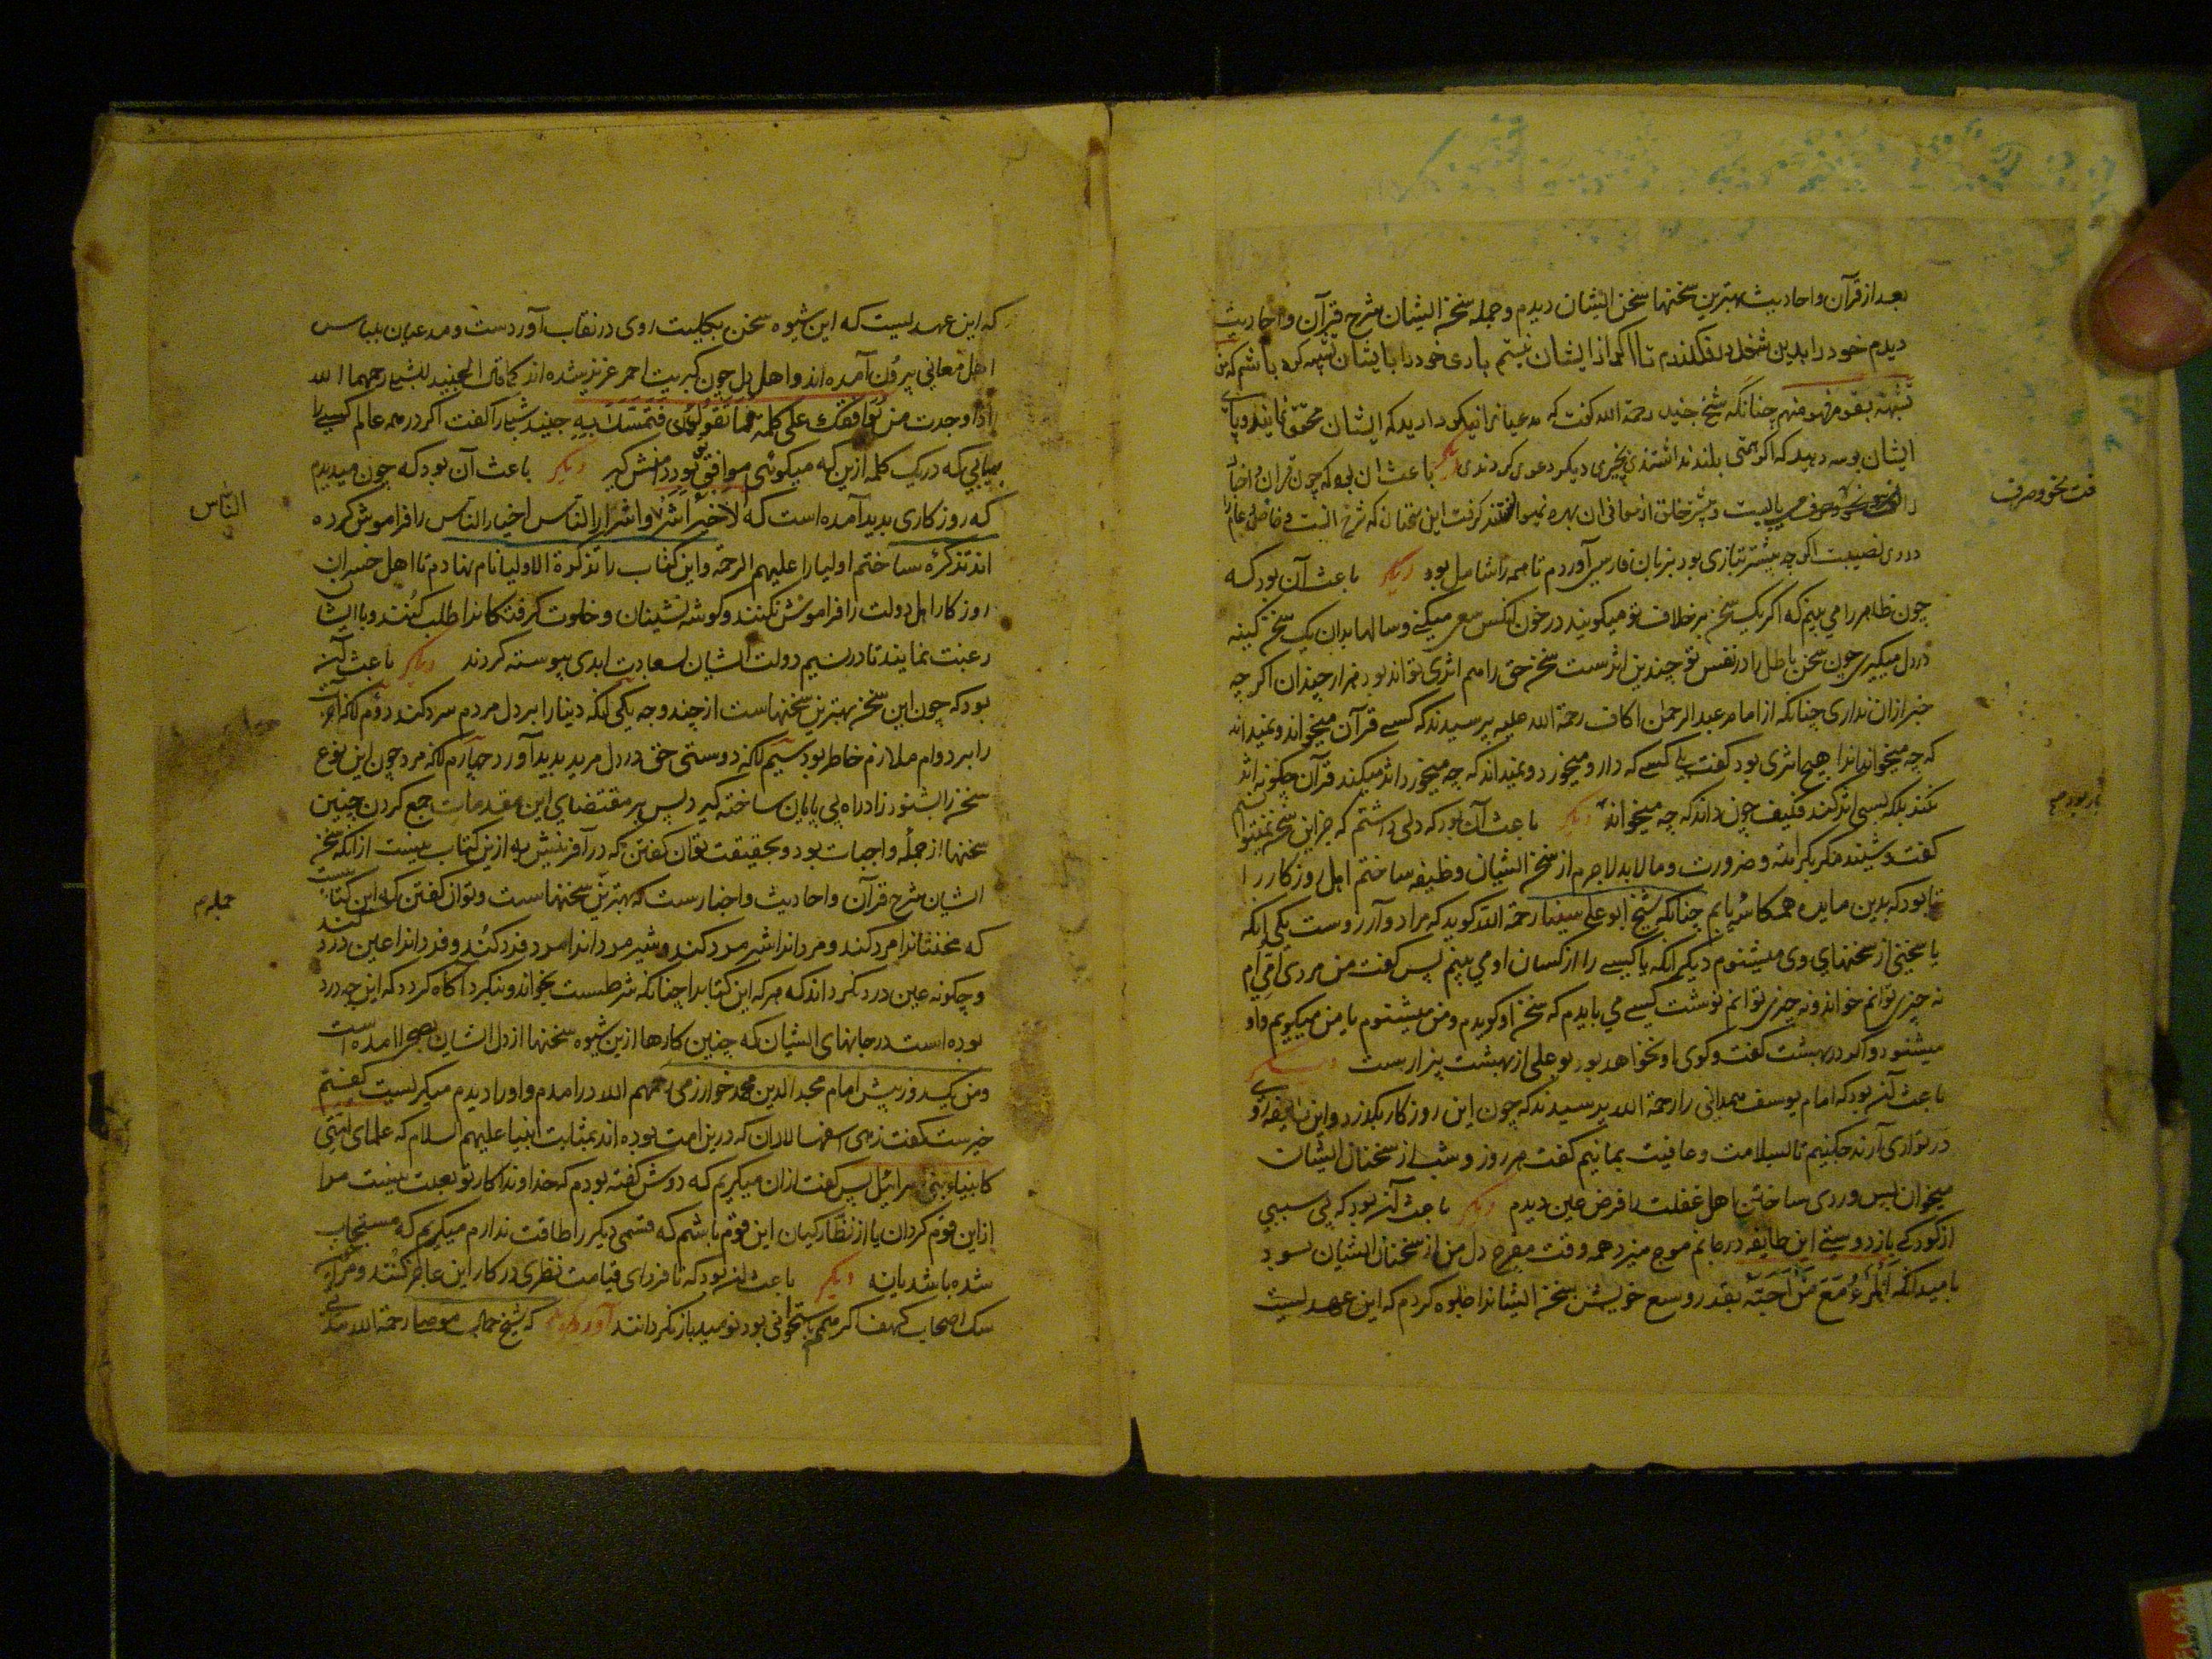 بعد از قرآن و احادیث بهترین سخنها سخن ایشان دیدم و جمله سخن ایشان شرح قرآن و احادیث
دیدم خود را بدین شغل در فکندم تا اگر از ایشان نیستم باری خود را با ایشان تشبه کرده باشم که من
تشبه بقوم فهو منهم چنانکه شیخ جنید رحمة الله گفت که مدعیانرا نیکو دارید که ایشان محقق نمایند و پای
ایشان بوسه دهید که اگر همتی بلند نداشتندی بچیزی دیگر دعوی کردندی دیگر باعث آن بود که چون قرآن و اخبار
را لغت نحو و صرف می بایست و بیشتر خلق از معانی آن بهره نمی توانستند گرفت این سخنان که شرح آنست و خاص و عام را
در وی نصیبست اگرچه بیشتر بتازی بود بزبان فارسی آوردم تا همه را شامل بود دیگر باعث آن بود که
چون ظاهر را می بینم که اگر یک سخن بر خلاف تو میگویند در خون آنکس سعی میکنی و سالها بدان یک سخن کینه
در دل میگیری چون سخن باطل را در نفس تو چندین اثرست سخن حق را هم اثری تواند بود هزار چندان اگرچه
خبر از آن نداری چنانکه از امام عبد الرحمن اکاف رحمة الله علیه پرسیدند که کسی قرآن میخواند و نمیداند
که چه میخواند آنرا هیچ اثری بود گفت بلی کسی که دارو میخورد و نمیداند که چه میخورد اثر میکند قرآن چگونه اثر
نکند بلکه بسی اثر کند فکیف چون داند که چه میخواند دیگر باعث آن بود که دلی داشتم که جز این سخن نمیتوانستم
گفت و شنید مگر بکراهت و ضرورت و ما لابد لاجرم از سخن ایشان وظیفه ساختم اهل روزگار را
تا بود که بدین مایده همکاسه یابم چنانکه شیخ ابو علی سینا رحمة الله گوید که مرا دو آرزوست یکی آنکه
یا سخنی از سخنهای وی میشنوم دیگر آنکه یا کسی را از کسان او می بینم پس گفت من مردی امی ام
نه چیزی توانم خواند و نه چیزی توانم نوشت کسی می بایدم که سخن او گویدم و من میشنوم یا من میگویم و او
میشنود و اگر در بهشت گفت و گوی او نخواهد بود بو علی از بهشت بیزارست
باعث آن بود که امام یوسف همدانی را رحمة الله پرسیدند که چون این روزگار بگذرد و این طایفه روی
در تواری آرند چکنیم تا بسلامت و عافیت بمانیم گفت هر روز و شب از سخنان ایشان
میخوان پس وردی ساختن اهل غفلت را فرض عین دیدم دیگر باعث آن بود که بی سببی
از کودکی باز دوستی این طایفه در جانم موج میزد همه وقت مفرح دل من از سخنان ایشان بود
بامید آنکه المرء مع من احبه بقدر وسع خویش سخن ایشانرا جلوه کردم که این عهدیست
لغت نحو و صرف
که این عهدیست که این شیوه سخن بکلیت روی در نقاب آورده است و مدعیان بلباس
اهل معانی بیرون آمده اند و اهل دل چون کبریت احمر عزیز شده اند کما قال الجنید للشبلی رحمهما الله
اذا وجدت من یوافقک علی کلمة مما تقول فتمسک به جنید شبلی را گفت اگر در همه عالم کسی را
بیابی که در یک کلمه ازین که میگوئی موافق تو بود دامنش گیر دیگر باعث آن بود که چون میدیدم
که روزگاری پدید آمده است که الخیر شر و اشرار الناس اخیار الناس را فراموش کرده
اند تذکرۀ ساختم اولیا را علیهم الرحمة و این کتاب را تذکرة الاولیا نام نهادم تا اهل خسران
روزگار اهل دولت را فراموش نکنند و گوشه نشینان و خلوت گرفتگانرا طلب کنند و با ایشان
رغبت نمایند تا در نسیم دولت ایشان بسعادت ابدی پیوسته گردند دیگر باعث آن
بود که چون این سخن بهترین سخنهاست از چند وجه یکی آنکه دنیا را بر دل مردم سرد کند دوم آنکه آخرت
را بر دوام ملازم خاطر بود سیم آنکه دوستی حق در دل مرید پدید آورد چهارم آنکه مرد چون این نوع
سخن را بشنود زاد راه بی پایان ساختن گیرد پس بر مقتضای این مقدمات جمع کردن چنین
سخنها از جمله واجبات بود و بحقیقت توان گفتن که در آفرینش به ازین کتاب نیست از آنکه سخن
ایشان شرح قرآن و احادیث و اخبارست که بهترین سخنهاست و توان گفتن که این کتابیست
که مخنثانرا مرد کند و مردانرا شیر مرد کند و شیر مردانرا مرد فرد کند و فردانرا عین درد کند
و چگونه عین درد نگرداند که هر که این کتابرا چنانکه شرطست بخواند و بنگرد آگاه گردد که این چه درد
بوده است در جانهای ایشان که چنین کارها ازین شیوه سخنها از دل ایشان بصحرا آمده است
و من یک روز پیش امام مجد الدین محمد خوارزمی رحمهم الله در آمدم و او را دیدم میگریست گفتم
خیرست گفت زهی سپهسالاران که درین امت بوده اند بمثابت انبیا علیهم السلام که علمای امتی
کانبیاء بنی اسرائیل پس گفت از آن میگریم که دوش گفته بودم که خداوندا کار تو بعلت نیست مرا
از این قوم گردان یا از نظارگیان این قوم باشم که قسمی دیگر را طاقت ندارم میگریم که مستجاب
شده باشد یا نه دیگر باعث آن بود که تا فردای قیامت نظری در کار این عاجز کنند و مرا چون
سگ اصحاب کهف اگر همه باستخوانی بود نومید بازنگردانند آورده اند که شیخ جمال موصلی رحمة الله
الناس